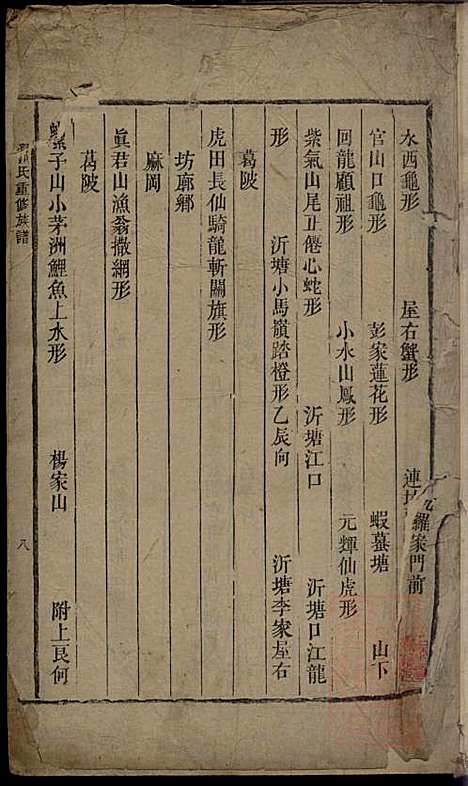 水西龜形 屋右蟹形 連 羅家門前
官山口龜形 彭家蓮花形 蝦蟇塘 山下
回龍顧祖形 小水山鳳形 元輝仙虎形
紫氣山尾正倦心蛇形 沂塘江口 沂塘口江龍
形 沂塘小馬嶺踏橙形乙辰向 沂塘李家屋右
葛陂
虎田長仙騎龍斬關旗形
坊廓鄉
麻岡
眞君山漁翁撒網形
萵陂
子山小茅洲鯉魚上水形 楊家山 附上艮何
氏重修族譜
八